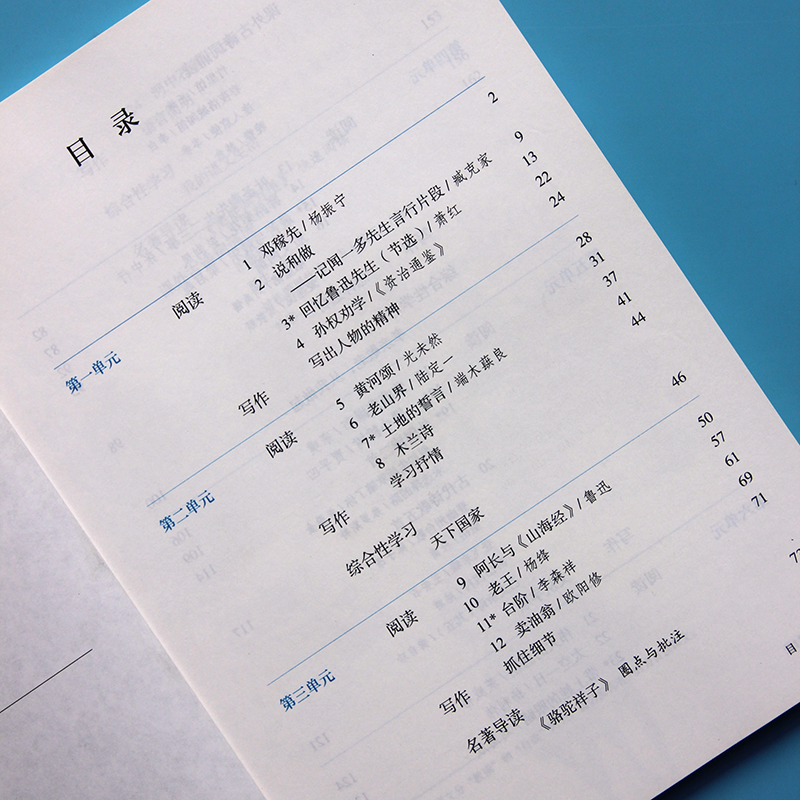 目 录
第一单元
阅读 1 邓稼先/杨振宁 2
2 说和做
——记闻一多先生言行片段/臧克家 9
3* 回忆鲁迅先生（节选）/萧红 13
4 孙权劝学/《资治通鉴》 22
写作 写出人物的精神 24
第二单元
阅读 5 黄河颂/光未然 28
6 老山界/陆定一 31
7* 土地的誓言/端木蕻良 37
8 木兰诗 41
写作 学习抒情 44
综合性学习 天下国家 46
第三单元
阅读 9 阿长与《山海经》/鲁迅 50
10 老王/杨绛 57
11* 台阶/李森祥 61
12 卖油翁/欧阳修 69
写作 抓住细节 71
名著导读 《骆驼祥子》 圈点与批注
目